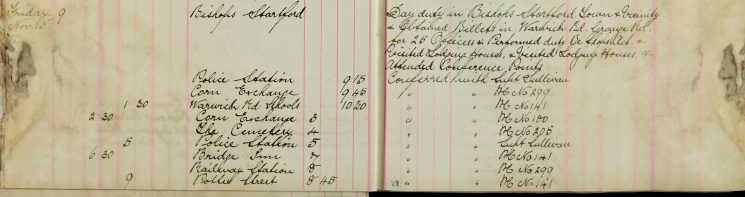 Friday 9 Bishops Stortford Day duty in Bishops Stortford Town & Vicinity
Nov. 13 & Obtained Billets in Warwick Rd. Grange Rd.
for 25 Officers & Performed duty
Visited Lodging Houses, & Visited Lodging Houses &
Attended Conference Points
Police Station 9 15 Conferred with Supt Sullivan
Corn Exchange 9 45 " " PC No 299
1 30 Warwick Rd Schools 10 30 " " PC No 141
2 30 Corn Exchange 3 " " PC No 180
The Cemetery 4 " " PC No 205
5 Police Station 5 " " Supt Sullivan
6 30 Bridge Inn 7 " " PC No 141
Railway Station 8 " " PC No 299
9 Potter Street 8 45 28 " " PC No 141